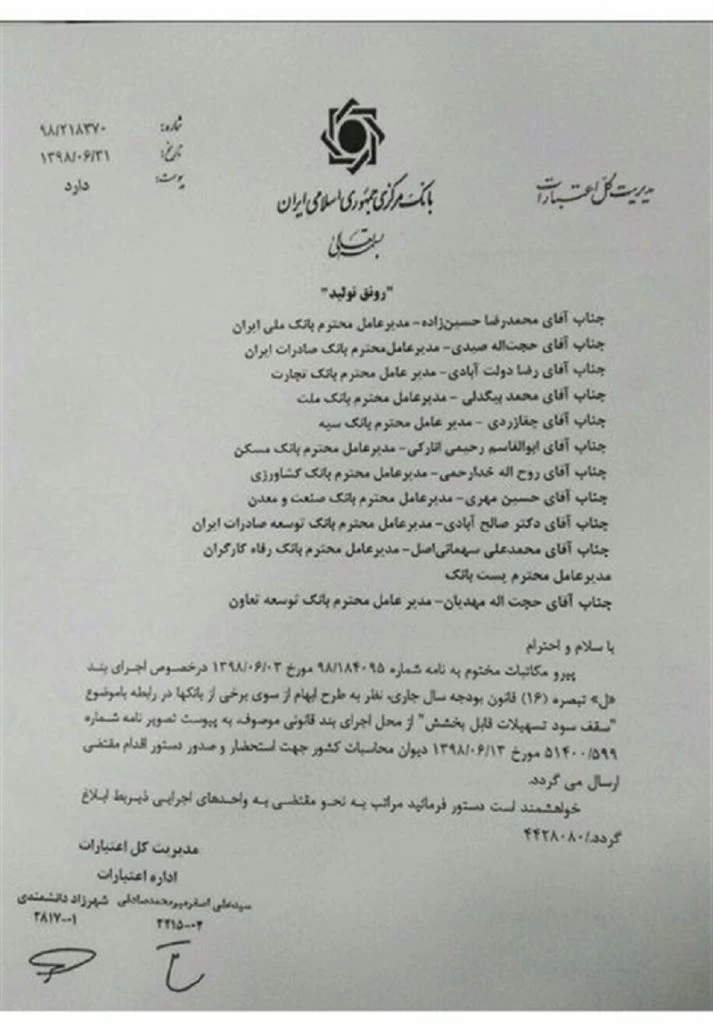 مدیریت کل اعتبارات
بانک مرکزی جمهوری اسلامی ایران
بسمه تعالی
شماره: ۹۸/۲۱۸۳۷۰
تاریخ: ۱۳۹۸/۰۶/۳۱
پیوست: دارد
"رونق تولید"
جناب آقای محمدرضا حسین‌زاده- مدیرعامل محترم بانک ملی ایران
جناب آقای حجت‌اله صیدی- مدیرعامل‌محترم بانک صادرات ایران
جناب آقای رضا دولت آبادی- مدیر عامل محترم بانک تجارت
جناب آقای محمد بیگدلی - مدیرعامل محترم بانک ملت
جناب آقای چقازردی - مدیر عامل محترم بانک سپه
جناب آقای ابوالقاسم رحیمی انارکی- مدیرعامل محترم بانک مسکن
جناب آقای روح اله خدارحمی- مدیرعامل محترم بانک کشاورزی
جناب آقای حسین مهری- مدیرعامل محترم بانک صنعت و معدن
جناب آقای دکتر صالح آبادی- مدیرعامل محترم بانک توسعه صادرات ایران
جناب آقای محمدعلی سهمانی‌اصل- مدیرعامل محترم بانک رفاه کارگران
مدیرعامل محترم پست بانک
جناب آقای حجت اله مهدیان- مدیر عامل محترم بانک توسعه تعاون
با سلام و احترام
پیرو مکاتبات مختوم به نامه شماره ۹۸/۱۸۴۰۹۵ مورخ ۱۳۹۸/۰۶/۰۳ درخصوص اجرای بند
«ل» تبصره (۱۶) قانون بودجه سال جاری، نظر به طرح ابهام از سوی برخی از بانکها در رابطه باموضوع
"سقف سود تسهیلات قابل بخشش" از محل اجرای بند قانونی موصوف، به پیوست تصویر نامه شماره
۵۱۴۰۰/۵۹۹ مورخ ۱۳۹۸/۰۶/۱۳ دیوان محاسبات کشور جهت استحضار و صدور دستور اقدام مقتضی
ارسال می گردد.
خواهشمند است دستور فرمائید مراتب به نحو مقتضی به واحدهای اجرایی ذیربط ابلاغ
گردد./۴۴۲۸۰۸۰
مدیریت کل اعتبارات
اداره اعتبارات
سیدعلی اصغرمیرمحمدصادقی شهرزاد دانشمندی
۲۲۱۵-۰۲ ۲۸۱۷-۰۱